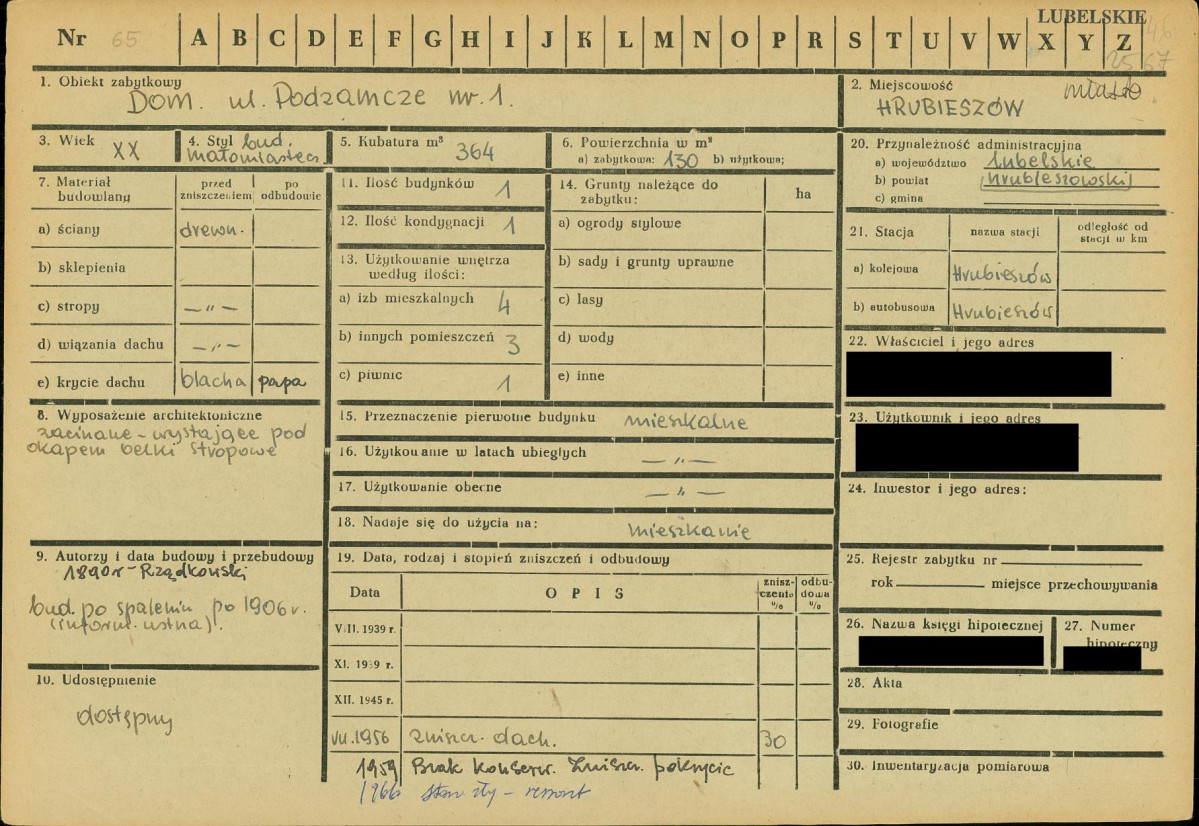 LUBELSKIE
Nr 65 A B C D E F G H I J K L M N O P R S T U V W X Y Z
1. Obiekt zabytkowy
Dom. ul. Podzamcze nr. 1.
2. Miejscowość miasto
HRUBIESZÓW
3. Wiek XX
4. Styl bud.
małomiastecz.
5. Kubatura m³ 364
6. Powierzchnia w m²
a) zabytkowa: 130 b) użytkowa;
7. Materiał budowlany
przed zniszczeniem
po odbudowie
a) ściany drewn.
b) sklepienia
c) stropy — „ —
d) wiązania dachu — „ —
e) krycie dachu blacha papa
8. Wyposażenie architektoniczne
zacinane - wystające pod
okapem belki stropowe
9. Autorzy i data budowy i przebudowy
1890r - Rządkowski
bud. po spaleniu po 1906 r.
(inform. ustna).
10. Udostępnienie
dostępny
11. Ilość budynków 1
12. Ilość kondygnacji 1
13. Użytkowanie wnętrza
według ilości:
a) izb mieszkalnych 4
b) innych pomieszczeń 3
c) piwnic 1
14. Grunty należące do
zabytku:
ha
a) ogrody stylowe
b) sady i grunty uprawne
c) lasy
d) wody
e) inne
15. Przeznaczenie pierwotne budynku mieszkalne
16. Użytkowanie w latach ubiegłych — „ —
17. Użytkowanie obecne — „ —
18. Nadaje się do użycia na: mieszkanie
19. Data, rodzaj i stopień zniszczeń i odbudowy
Data OPIS
znisz-
czenia
%
odbu-
dowa
%
VIII. 1939 r.
XI. 1939 r.
XII. 1945 r.
VII. 1956 zniszcz. dach. 30
1959 Brak konserw. Zniszcz. pokrycie
1966 stan zły - remont
20. Przynależność administracyjna
a) województwo lubelskie
b) powiat hrubieszowski
c) gmina
21. Stacja
nazwa stacji
odległość od
stacji w km
a) kolejowa Hrubieszów
b) autobusowa Hrubieszów
22. Właściciel i jego adres
23. Użytkownik i jego adres
24. Inwestor i jego adres:
25. Rejestr zabytku nr
rok miejsce przechowywania
26. Nazwa księgi hipotecznej
27. Numer
hipoteczny
28. Akta
29. Fotografie
30. Inwentaryzacja pomiarowa